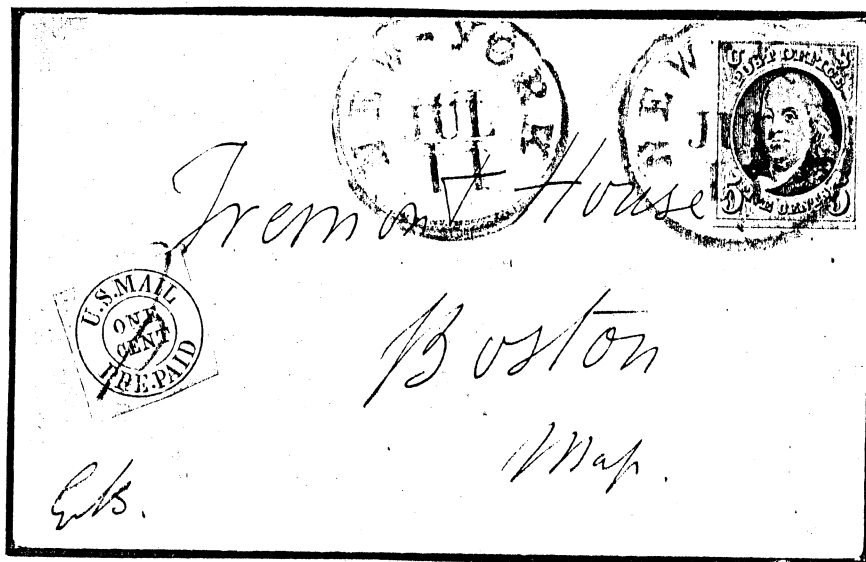 NEW-YORK
JUL
11
NEW
J
U S
POST OFFICE
5 FIVE CENTS 5
Tremont House
U.S.MAIL
ONE
CENT
PRE.PAID
Boston
Mass.